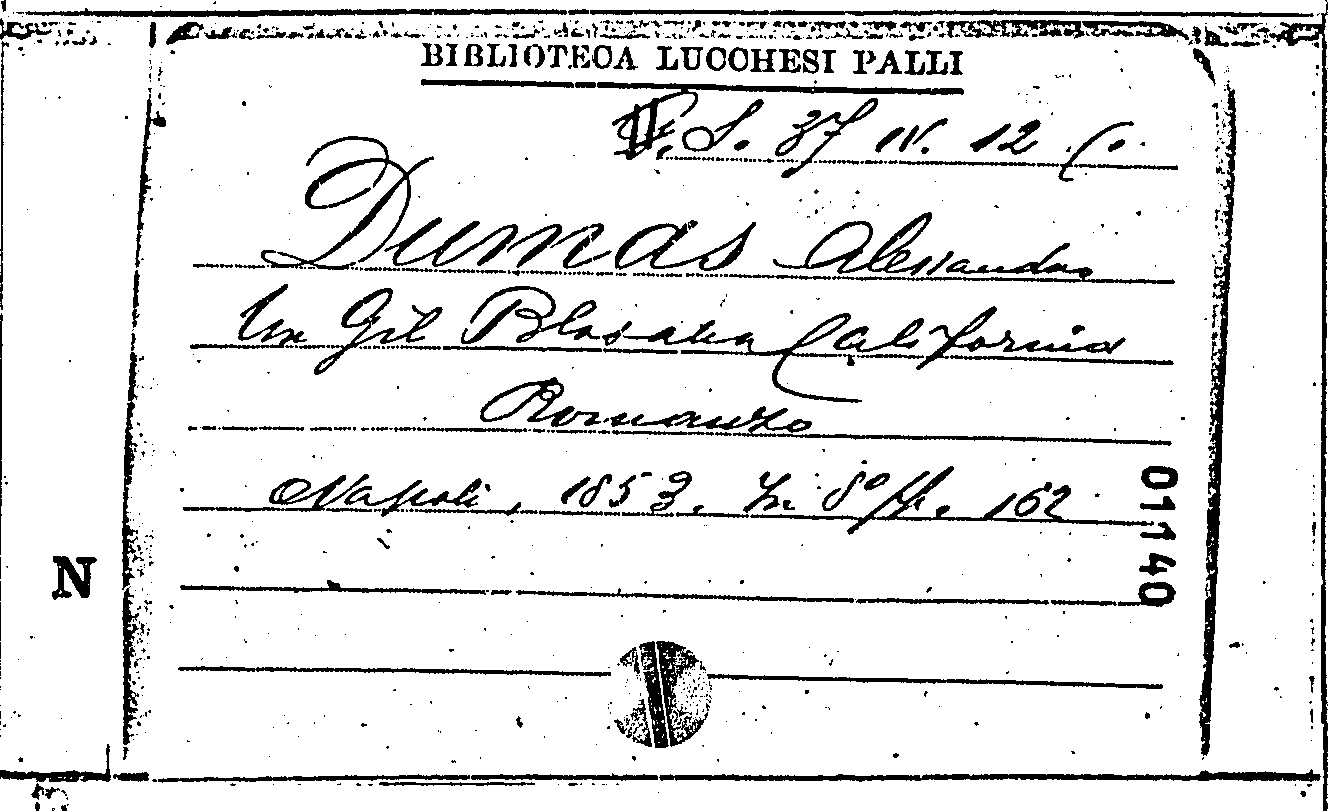 BIBLIOTECA LUCCHESI PALLI
S. 37 IV. 12 (.
Dumas Alessandro
Un Gil Blas California
Romanzo
Napoli, 1853. In 8° pp. 162
01140
N